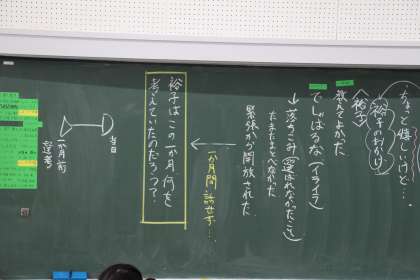 ちょっと嬉しいけど…
裕子のおかげ
〈裕子〉
教えてよかだ
でしばるな（イライラ）
↓落ちこみ（選ばれなかったこと）
たまたまとべなかだ
緊張が開放された
一か月間話せず…
裕子はこの一か月何を
考えていたのだろう？
当日
一か月前
選考